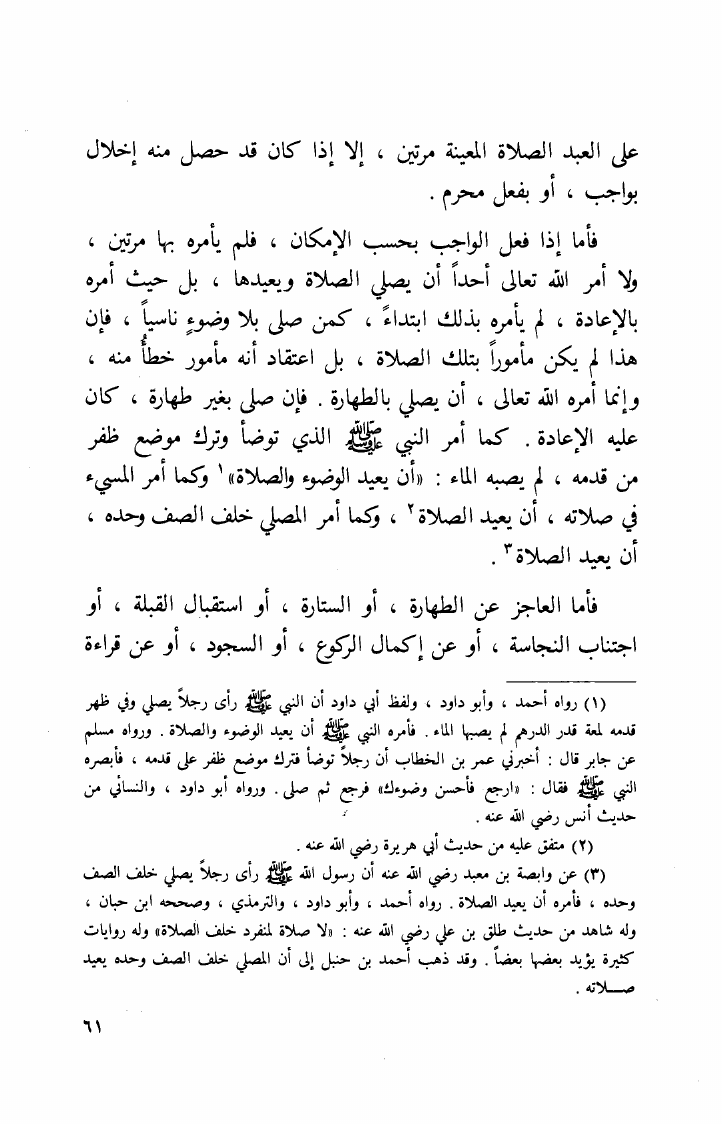 على العبد الصلاة المعينة مرتين ، إلا إذا كان قد حصل منه إخلال
بواجب ، أو بفعل محرم .
فأما إذا فعل الواجب بحسب الإمكان ، فلم يأمره بها مرتين ،
ولا أمر الله تعالى أحداً أن يصلي الصلاة ويعيدها ، بل حيث أمره
بالإعادة ، لم يأمره بذلك ابتداءً ، كمن صلى بلا وضوءٍ ناسياً ، فإن
هذا لم يكن مأموراً بتلك الصلاة ، بل اعتقاد أنه مأمور خطأٌ منه ،
وإنما أمره الله تعالى ، أن يصلي بالطهارة . فإن صلى بغير طهارة ، كان
عليه الإعادة . كما أمر النبي ﷺ الذي توضأ وترك موضع ظفر
من قدمه ، لم يصبه الماء : «أن يعيد الوضوء والصلاة»١ وكما أمر المسيء
في صلاته ، أن يعيد الصلاة٢ ، وكما أمر المصلي خلف الصف وحده ،
أن يعيد الصلاة٣ .
فأما العاجز عن الطهارة ، أو الستارة ، أو استقبال القبلة ، أو
اجتناب النجاسة ، أو عن إكمال الركوع ، أو السجود ، أو عن قراءة
(١) رواه أحمد ، وأبو داود ، ولفظ أبي داود أن النبي ﷺ رأى رجلاً يصلي وفي ظهر
قدمه لمعة قدر الدرهم لم يصبها الماء . فأمره النبي ﷺ أن يعيد الوضوء والصلاة . ورواه مسلم
عن جابر قال : أخبرني عمر بن الخطاب أن رجلاً توضأ فترك موضع ظفر على قدمه ، فأبصره
النبي ﷺ فقال : «ارجع فأحسن وضوءك» فرجع ثم صلى . ورواه أبو داود ، والنسائي من
حديث أنس رضي الله عنه .
(٢) متفق عليه من حديث أبي هريرة رضي الله عنه .
(٣) عن وابصة بن معبد رضي الله عنه أن رسول الله ﷺ رأى رجلاً يصلي خلف الصف
وحده ، فأمره أن يعيد الصلاة . رواه أحمد ، وأبو داود ، والترمذي ، وصححه ابن حبان ،
وله شاهد من حديث طلق بن علي رضي الله عنه : «لا صلاة لمنفرد خلف الصلاة» وله روايات
كثيرة يؤيد بعضها بعضاً . وقد ذهب أحمد بن حنبل إلى أن المصلي خلف الصف وحده يعيد
صــلاته .
٦١